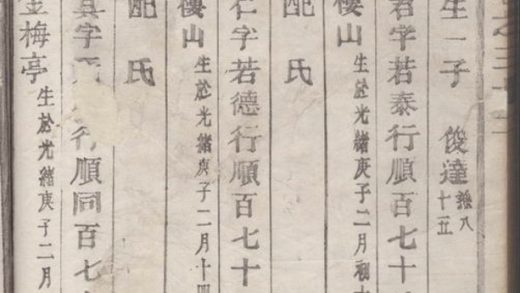 生一子 俊達 繼八十五
君字若泰行順百七十
樓山 生於光緒庚子二月初
配氏
仁字若德行順百七十
樓山 生於光緒庚子二月十四
配氏
真字 行順同百七
金梅亭 生於光緒庚子二月